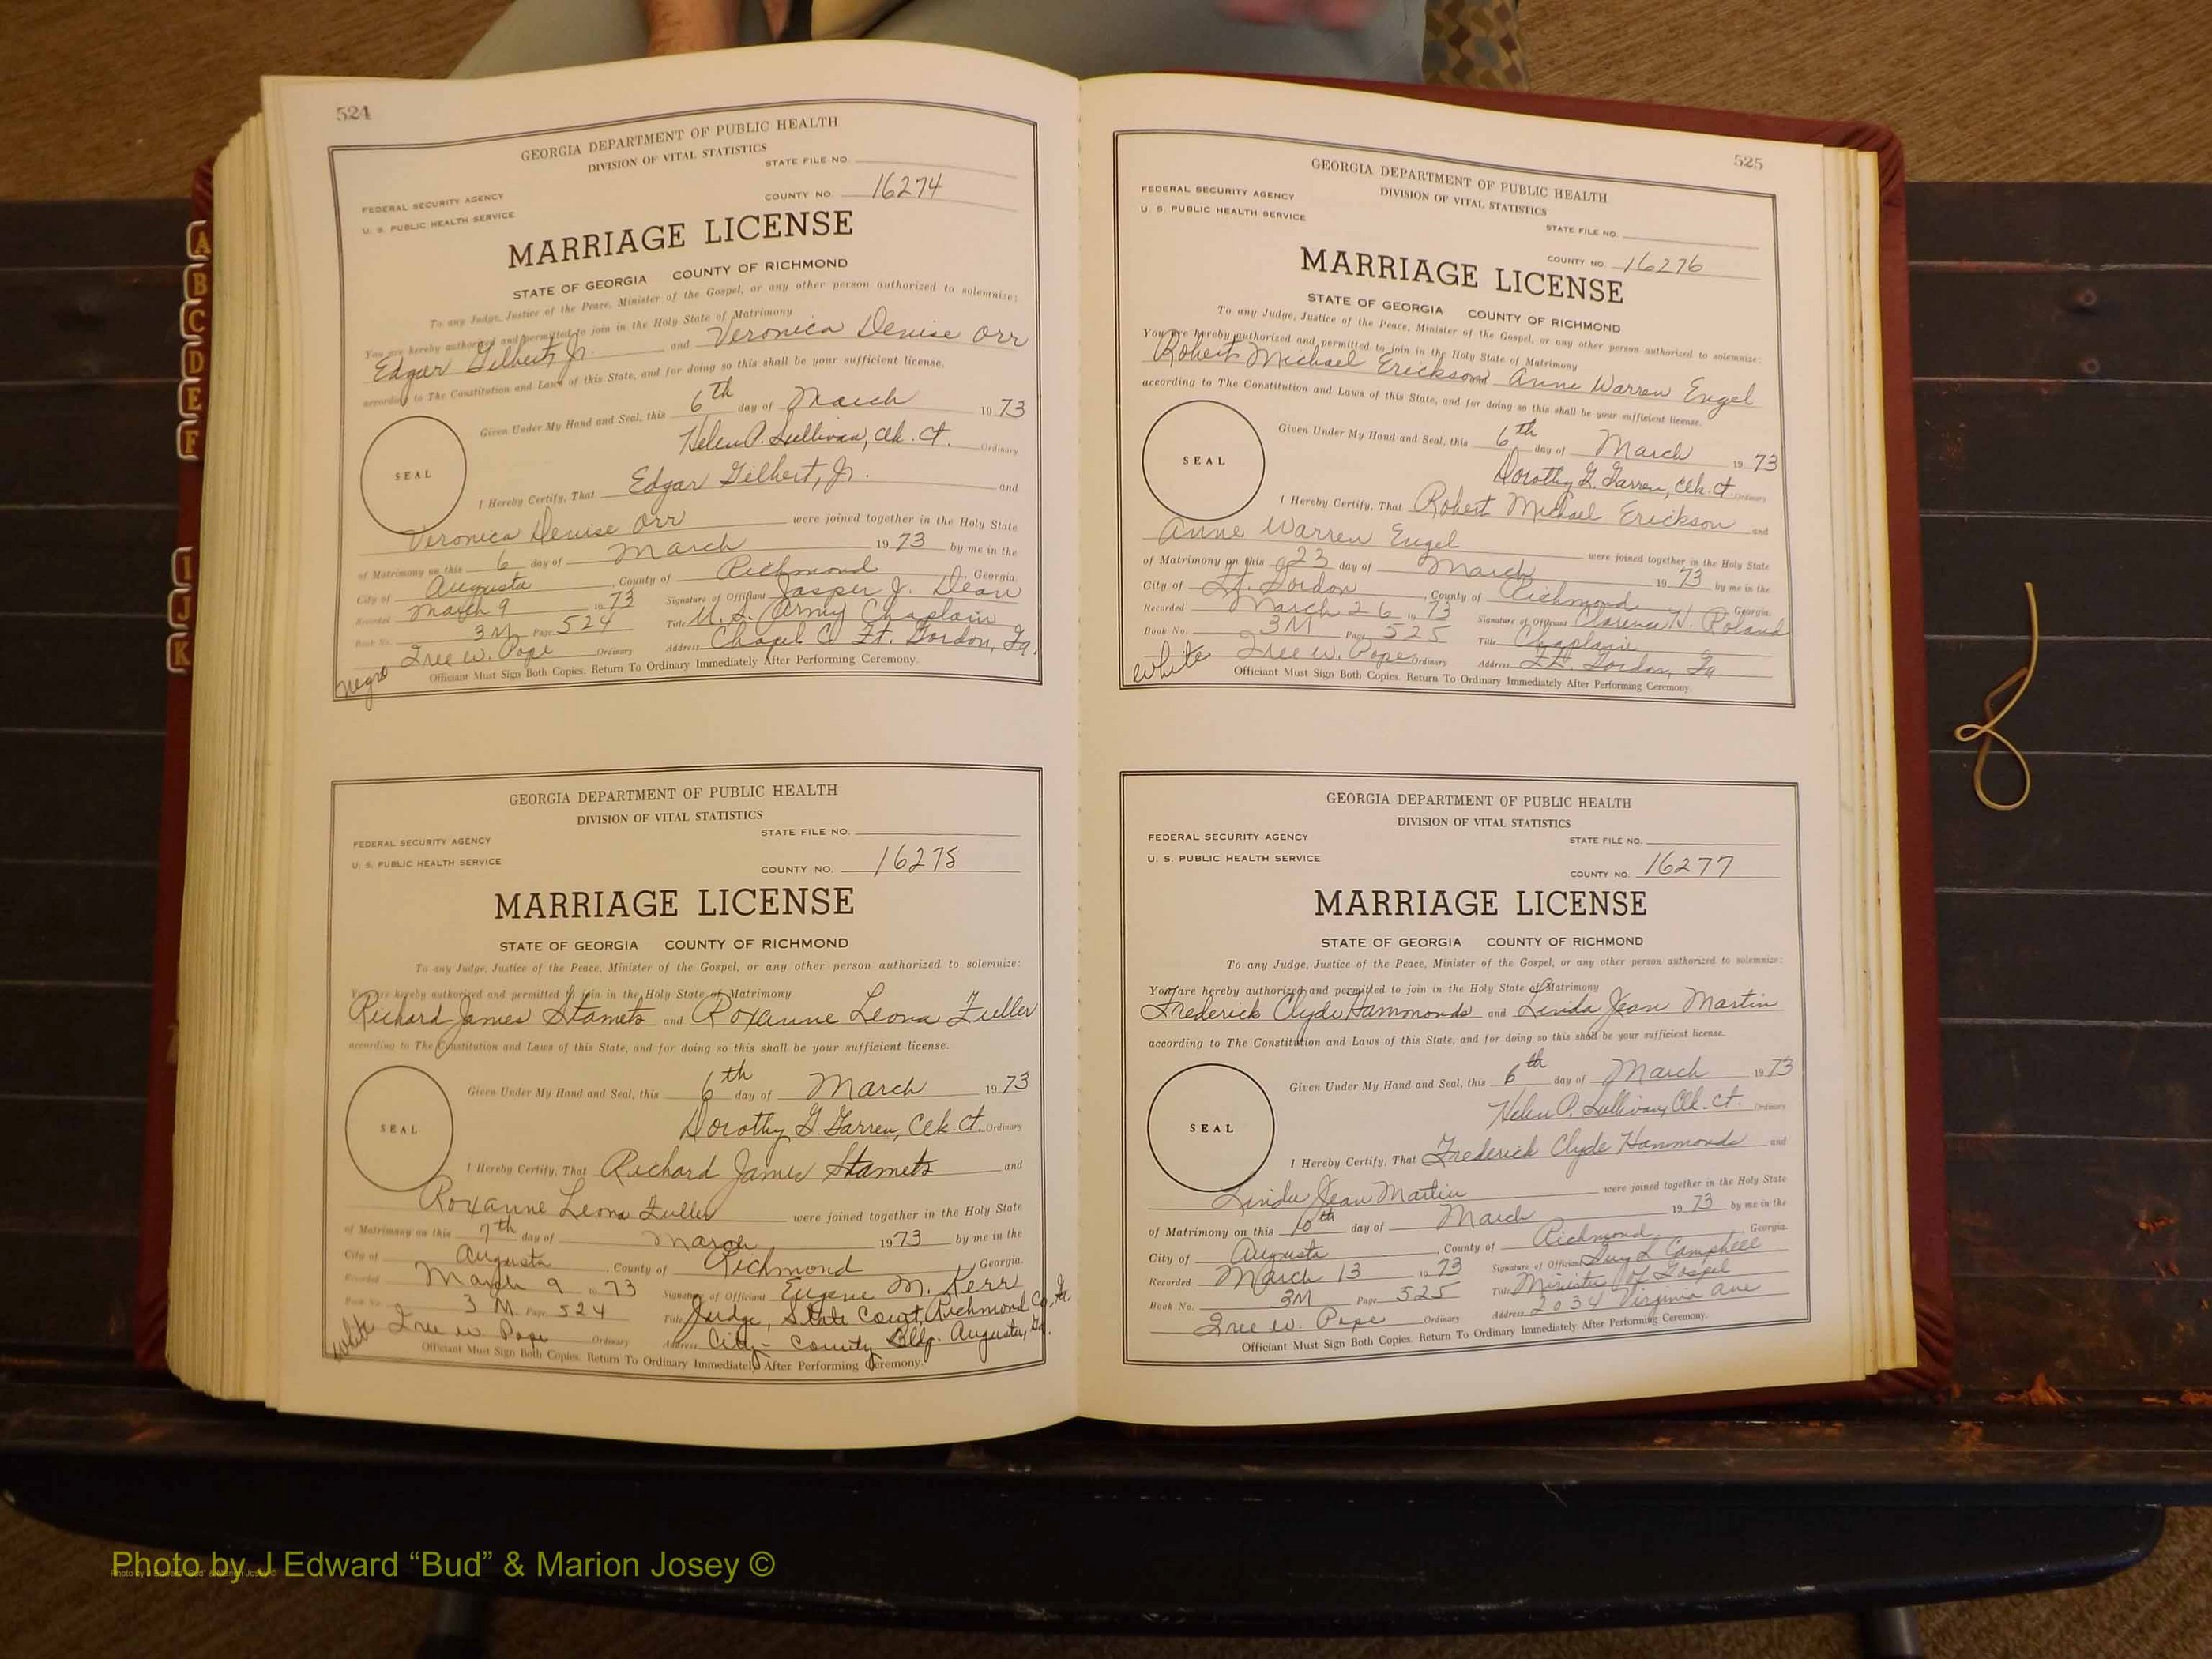 524
GEORGIA DEPARTMENT OF PUBLIC HEALTH
DIVISION OF VITAL STATISTICS
STATE FILE NO.
FEDERAL SECURITY AGENCY
COUNTY NO. 16274
U. S. PUBLIC HEALTH SERVICE
MARRIAGE LICENSE
STATE OF GEORGIA COUNTY OF RICHMOND
To any Judge, Justice of the Peace, Minister of the Gospel, or any other person authorized to solemnize:
You are hereby authorized and permitted to join in the Holy State of Matrimony
Edgar Gilbert, Jr. and Veronica Denise Orr
according to The Constitution and Laws of this State, and for doing so this shall be your sufficient license.
Given Under My Hand and Seal, this 6th day of March 1973
Helen P. Sullivan, Clk. Ct. Ordinary
SEAL
I Hereby Certify, That Edgar Gilbert, Jr. and
Veronica Denise Orr were joined together in the Holy State
of Matrimony on this 6 day of March 1973 by me in the
City of Augusta, County of Richmond, Georgia.
Recorded March 9 1973 Signature of Officiant Jasper J. Dean
Book No. 3M Page 524 Title U. S. Army Chaplain
Iree W. Pope Ordinary Address Chapel C Ft. Gordon, Ga.
negro Officiant Must Sign Both Copies. Return To Ordinary Immediately After Performing Ceremony.
GEORGIA DEPARTMENT OF PUBLIC HEALTH
DIVISION OF VITAL STATISTICS
STATE FILE NO.
FEDERAL SECURITY AGENCY
U. S. PUBLIC HEALTH SERVICE
COUNTY NO. 16275
MARRIAGE LICENSE
STATE OF GEORGIA COUNTY OF RICHMOND
To any Judge, Justice of the Peace, Minister of the Gospel, or any other person authorized to solemnize:
You are hereby authorized and permitted to join in the Holy State of Matrimony
Richard James Stamets and Roxanne Leona Fuller
according to The Constitution and Laws of this State, and for doing so this shall be your sufficient license.
Given Under My Hand and Seal, this 6th day of March 1973
Dorothy G. Farren, Clk. Ct. Ordinary
SEAL
I Hereby Certify, That Richard James Stamets and
Roxanne Leona Fuller were joined together in the Holy State
of Matrimony on this 7th day of March 1973 by me in the
City of Augusta, County of Richmond, Georgia.
Recorded March 9 1973 Signature of Officiant Eugene M. Kerr
Book No. 3M Page 524 Title Judge, State Court, Richmond Co., Ga.
Iree W. Pope Ordinary Address City-County Bldg. Augusta, Ga.
white Officiant Must Sign Both Copies. Return To Ordinary Immediately After Performing Ceremony.
525
GEORGIA DEPARTMENT OF PUBLIC HEALTH
DIVISION OF VITAL STATISTICS
FEDERAL SECURITY AGENCY
U. S. PUBLIC HEALTH SERVICE
STATE FILE NO.
COUNTY NO. 16276
MARRIAGE LICENSE
STATE OF GEORGIA COUNTY OF RICHMOND
To any Judge, Justice of the Peace, Minister of the Gospel, or any other person authorized to solemnize:
You are hereby authorized and permitted to join in the Holy State of Matrimony
Robert Michael Erickson and Anne Warren Engel
according to The Constitution and Laws of this State, and for doing so this shall be your sufficient license.
Given Under My Hand and Seal, this 6th day of March 1973
Dorothy G. Farren, Clk. Ct. Ordinary
SEAL
I Hereby Certify, That Robert Michael Erickson and
Anne Warren Engel were joined together in the Holy State
of Matrimony on this 23 day of March 1973 by me in the
City of Ft. Gordon, County of Richmond, Georgia.
Recorded March 26, 1973 Signature of Officiant Clarence H. Roland
Book No. 3M Page 525 Title Chaplain
Iree W. Pope Ordinary Address Ft. Gordon, Ga.
white Officiant Must Sign Both Copies. Return To Ordinary Immediately After Performing Ceremony.
GEORGIA DEPARTMENT OF PUBLIC HEALTH
DIVISION OF VITAL STATISTICS
FEDERAL SECURITY AGENCY
STATE FILE NO.
U. S. PUBLIC HEALTH SERVICE
COUNTY NO. 16277
MARRIAGE LICENSE
STATE OF GEORGIA COUNTY OF RICHMOND
To any Judge, Justice of the Peace, Minister of the Gospel, or any other person authorized to solemnize:
You are hereby authorized and permitted to join in the Holy State of Matrimony
Frederick Clyde Hammonds and Linda Jean Martin
according to The Constitution and Laws of this State, and for doing so this shall be your sufficient license.
Given Under My Hand and Seal, this 6th day of March 1973
Helen P. Sullivan, Clk. Ct. Ordinary
SEAL
I Hereby Certify, That Frederick Clyde Hammonds and
Linda Jean Martin were joined together in the Holy State
of Matrimony on this 10th day of March 1973 by me in the
City of Augusta, County of Richmond, Georgia.
Recorded March 13 1973 Signature of Officiant Guy L Campbell
Book No. 3M Page 525 Title Minister of Gospel
Iree W. Pope Ordinary Address 2034 Virginia Ave
Officiant Must Sign Both Copies. Return To Ordinary Immediately After Performing Ceremony.
A
B
C
D
E
F
I
J
K
Photo by J Edward “Bud” & Marion Josey ©
Photo by J Edward "Bud" & Marion Josey ©